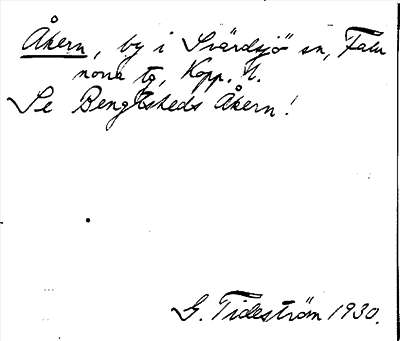 Åkern, by i Svärdsjö sn, Falu
norra tg, Kopp. l.
Se Bengtsheds Åkern!
G. Tideström 1930.